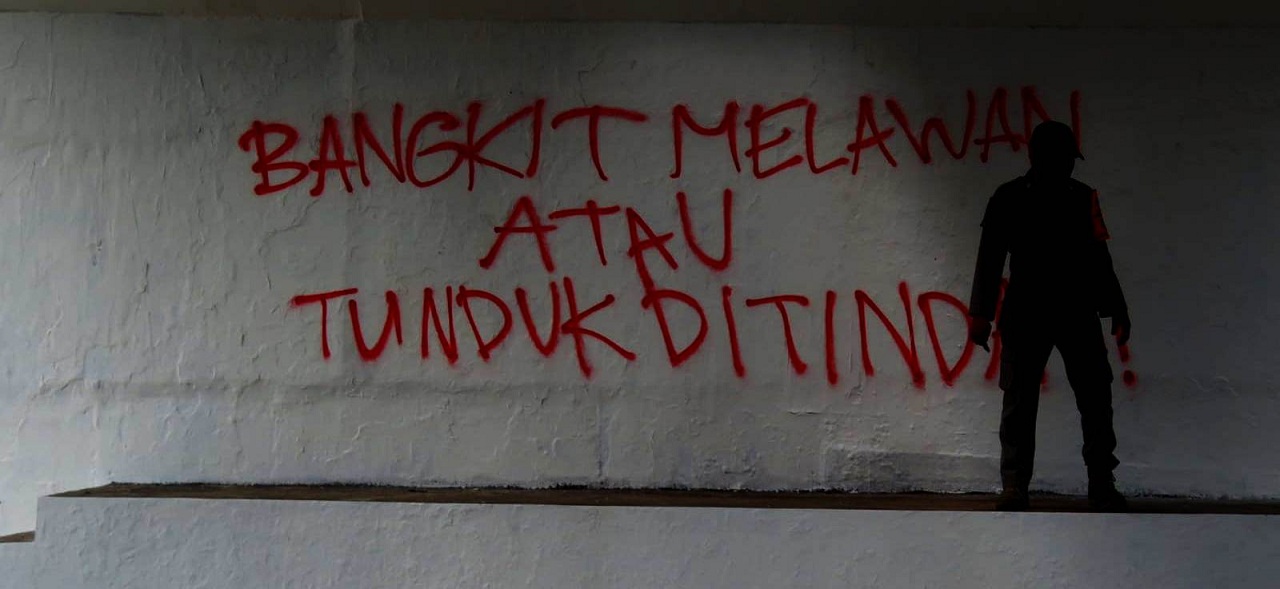 BANGKIT MELAWAN
ATAU
TUNDUK DITINDA !